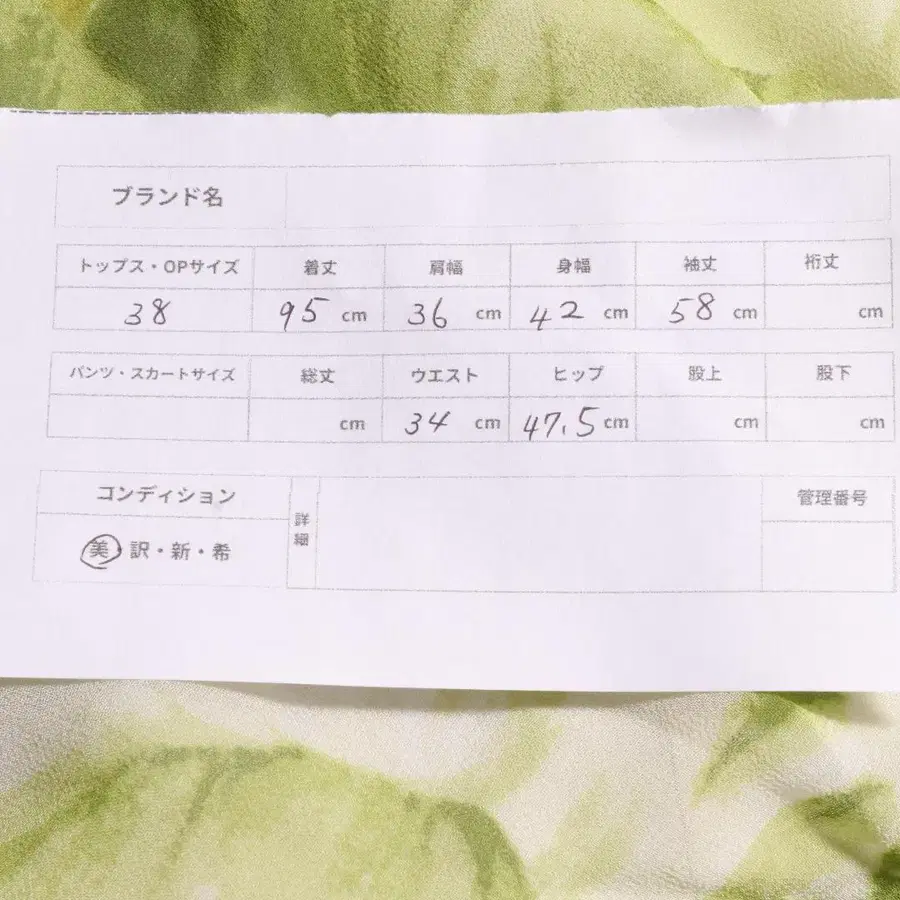 ブランド名
トップス・OPサイズ 着丈 肩幅 身幅 袖丈 裄丈
38 95 cm 36 cm 42 cm 58 cm cm
パンツ・スカートサイズ 総丈 ウエスト ヒップ 股上 股下
cm 34 cm 47.5 cm cm cm
コンディション 詳細 管理番号
美・訳・新・希